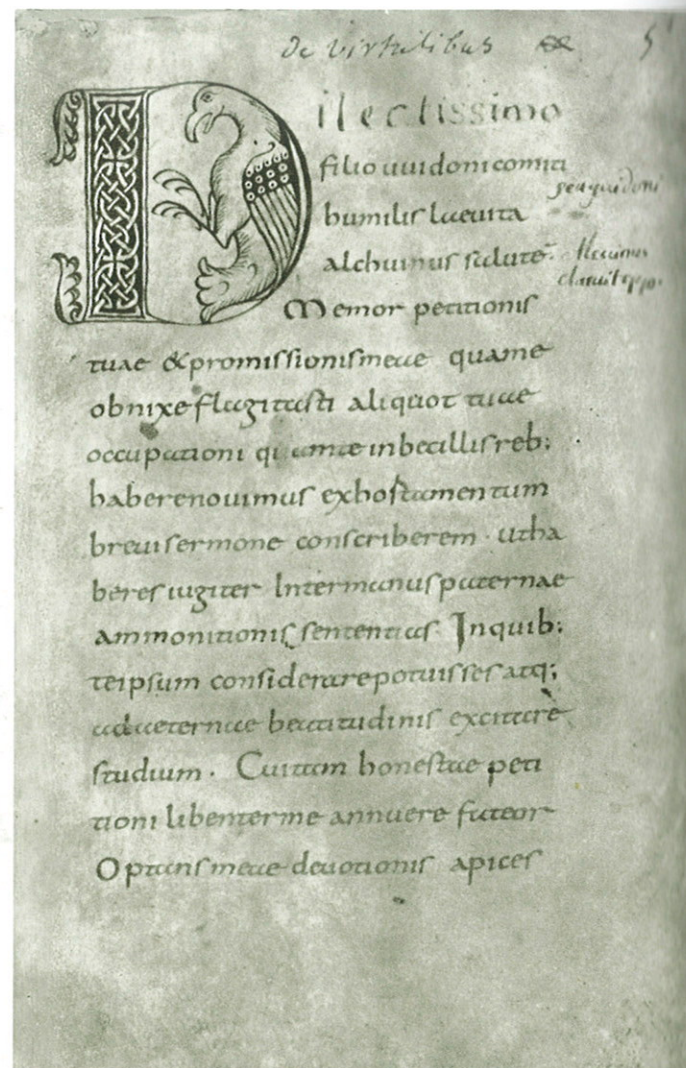 De virtutibus &
Dilectissimo
filio uuidoni comiti
humilis laeuita
alchuinus salutē
Memor petitionis
tuae & promissionis meae quā me
obnixe flagitasti aliquot tuae
occupationi quā te in bellicis reb;
habere nouimus exhostamentum
breui sermone conscriberem · utha
beres iugiter Inter manus paternae
ammonitionis sententias · Inquib;
teipsum considerare potuisses atq;
ad aeternae beatitudinis excitare
studium · Cui tam honestae peti
tioni libenter me annuere fateor
Optans meae deuotionis apices